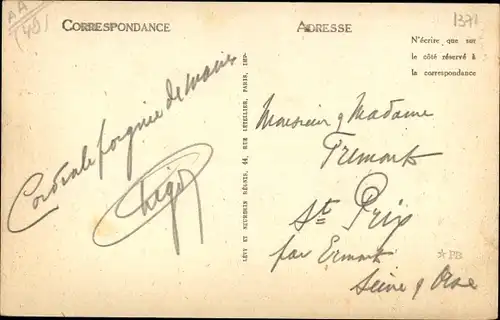 AA
(49)
CORRESPONDANCE
ADRESSE
1371
N'écrire que sur
le côté réservé à
la correspondance
Cordiale poignée de mains
LÉVY ET NEURDEIN RÉUNIS, 44, RUE LETELLIER, PARIS, IMP.
Monsieur & Madame
Frémont
St Prix
par Ermont
Seine & Oise
*PB